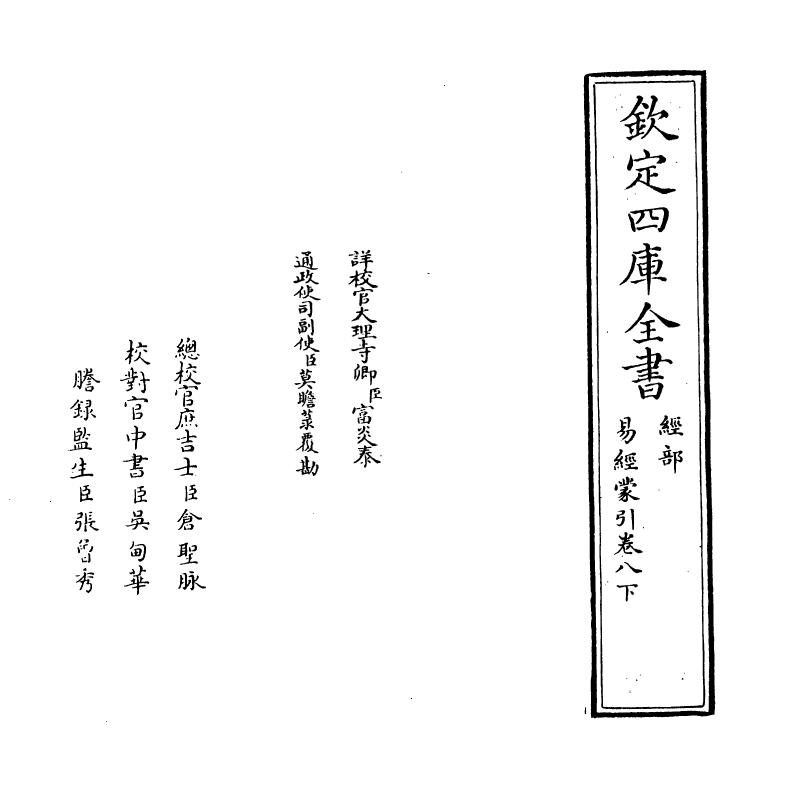 欽定四庫全書
經部
易經蒙引卷八下
詳校官大理寺卿臣富炎泰
通政使司副使臣莫瞻菉覆勘
總校官庶吉士臣倉聖脉
校對官中書臣吳甸華
謄録監生臣張曾秀